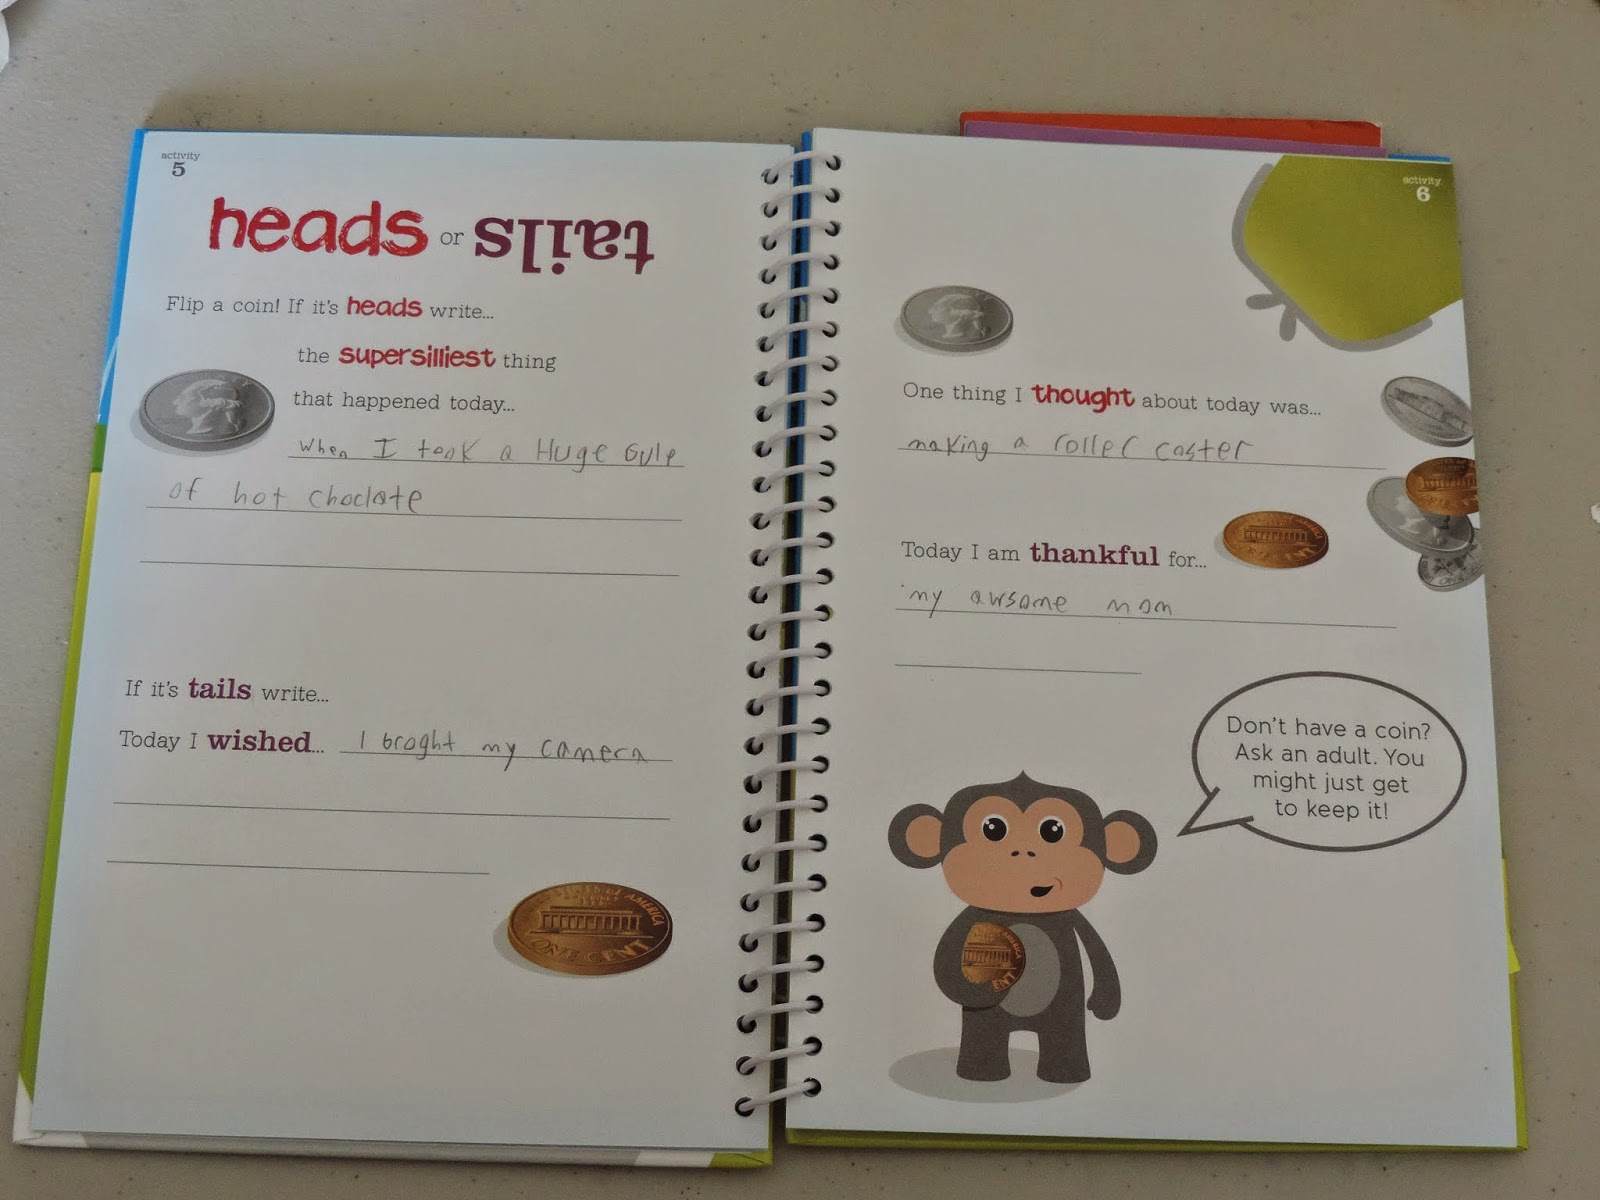 activity
5
heads or tails
Flip a coin! If it's heads write...
the supersilliest thing
that happened today...
when I took a Huge Gulp
of hot choclate
If it's tails write...
Today I wished... I broght my camera
UNITED STATES OF AMERICA
ONE CENT
activity
6
One thing I thought about today was...
making a roller coster
Today I am thankful for...
my awsome mom
Don't have a coin?
Ask an adult. You
might just get
to keep it!